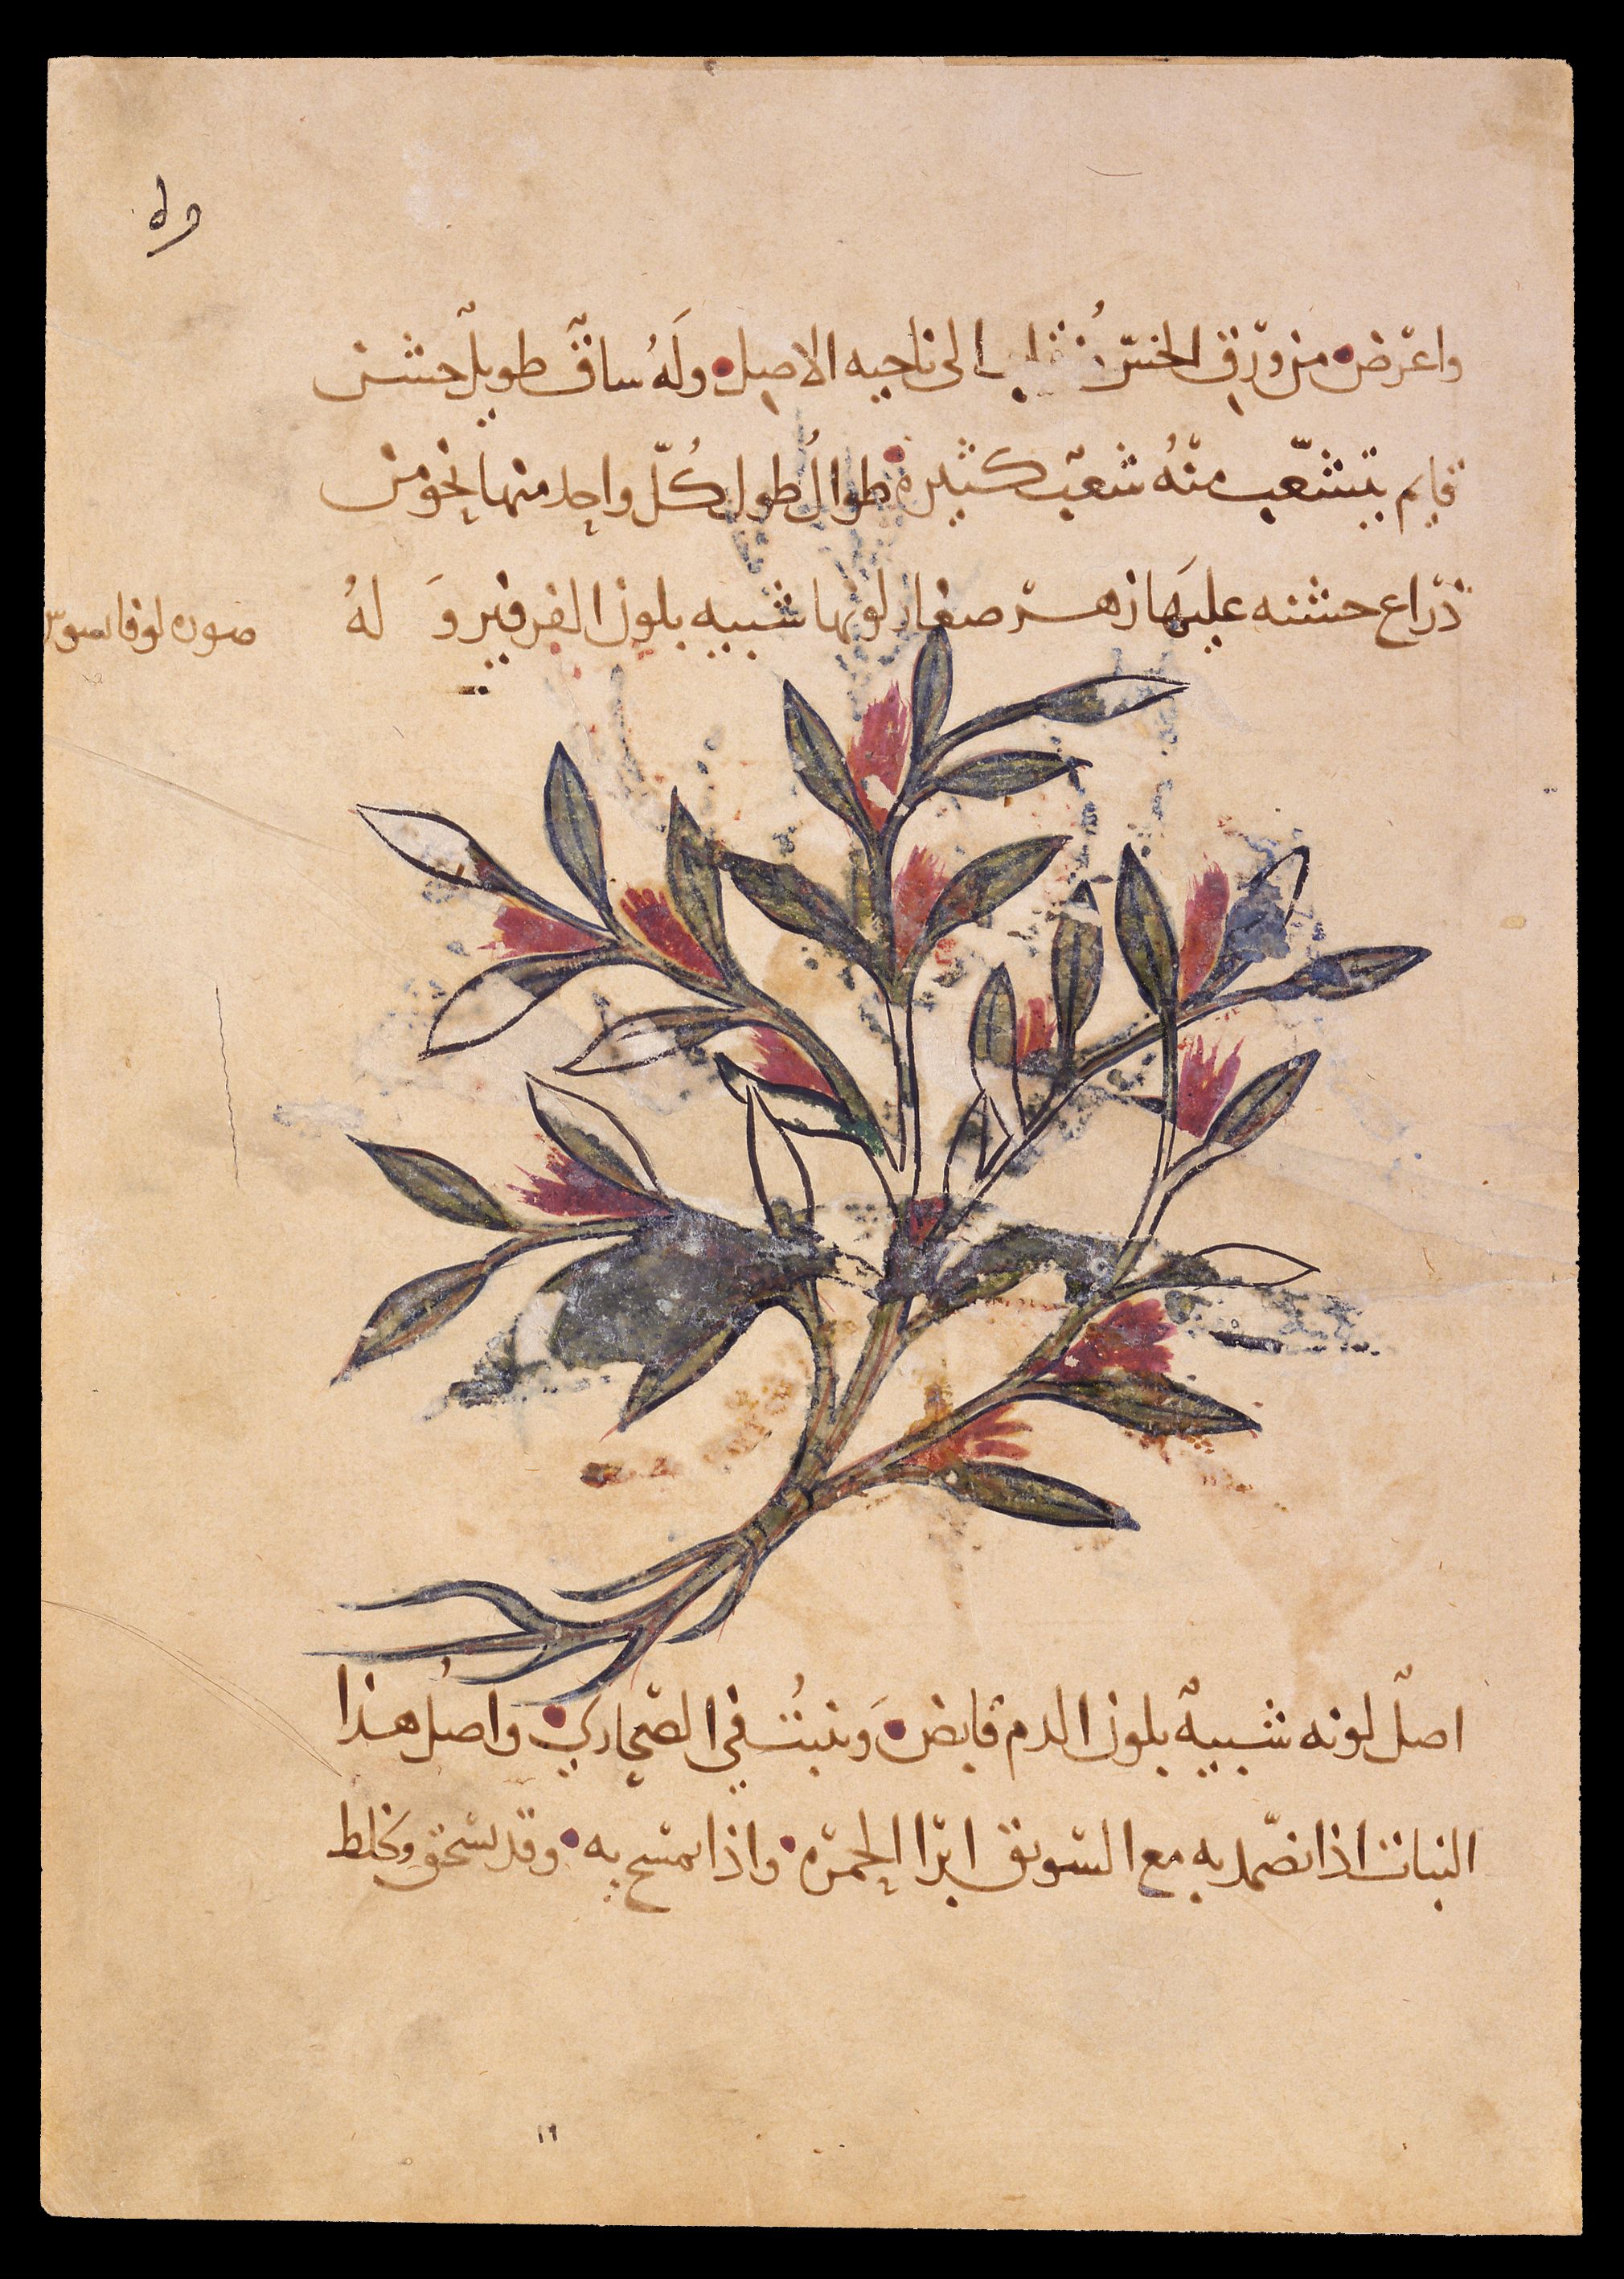 واعرض من ورق الخس الى ناحيه الاصل وله ساق طويل خشن
قايم يتشعب منه شعب كثيرة طوال طول كل واحد منها نحو من
ذراع خشنه عليها زهر صغار لونها شبيه بلون الفرفير وَ لهُ
صوره لوفاسوس
اصل لونه شبيه بلون الدم قابض وينبت في الصحاري واصل هذا
النبات اذا تضمد به مع السويق ابرا الحمره واذا تمسح به وقد يسحق ويخلط
١٦